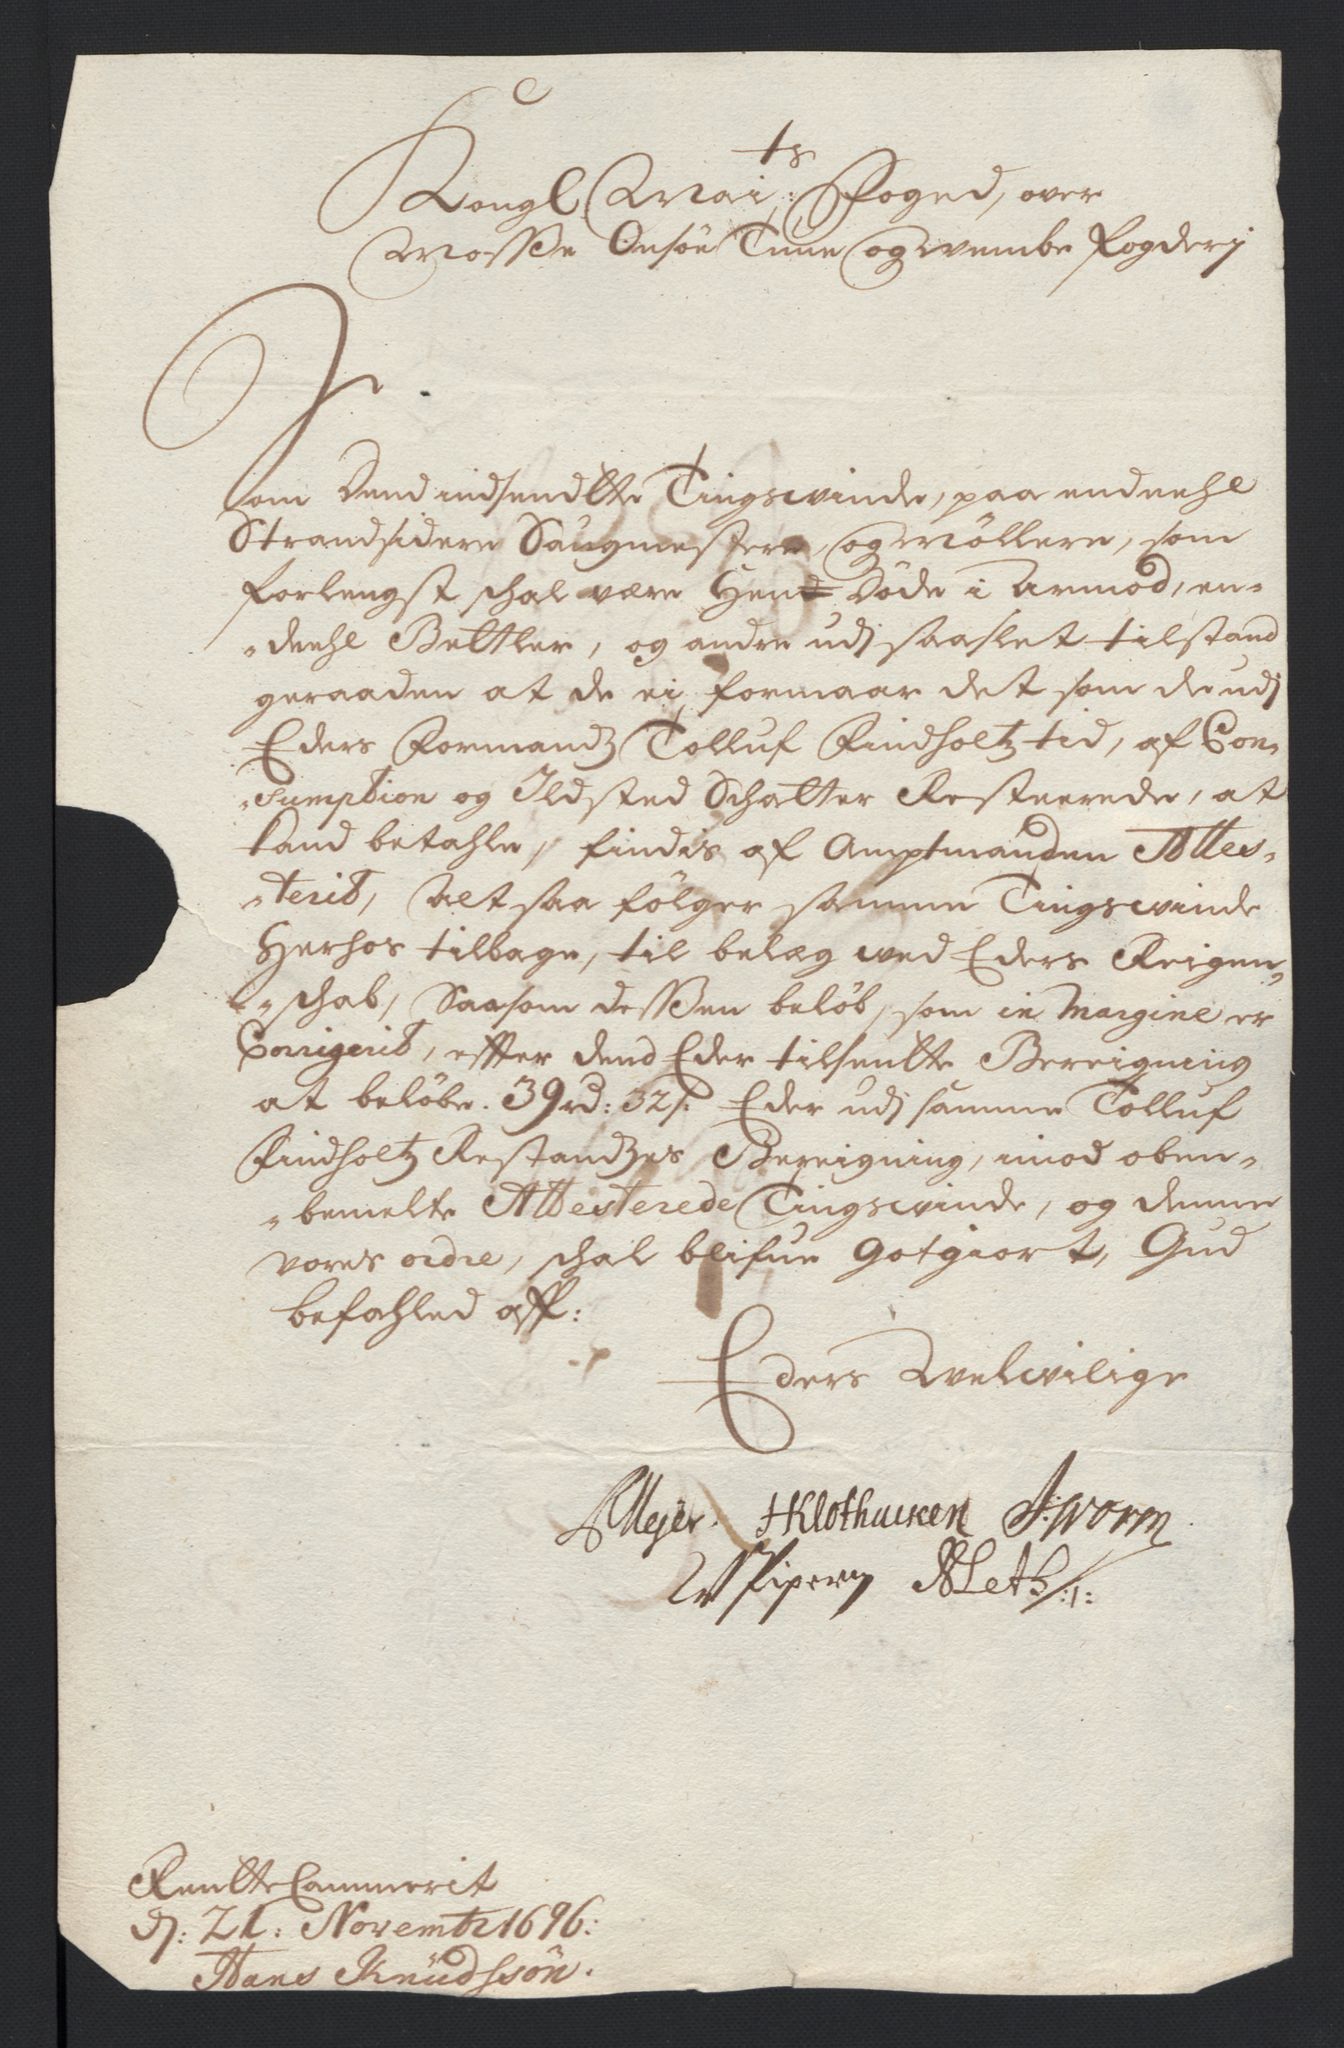 Kongl Mai:ts Foged, over
Mosse Onsöe Tune og Wembe Fogderj
Som dend indsendtte Tingsvinde, paa endeehl
Strandsidere Saugmestere, og Möllere, som
forlengst schal være Hen döde i Armod, en-
-deehl Bettler, og andre udj saa slet tilstand
geraaden at de ei formaar det som de udj
Eders Formandz Tolluf Findholtz tid, af Con-
-sumption og Ildsted Schatter Resteerede, at
kand betahle, findis af Amptmanden Attes-
-terit, Alt saa fölger samme Tingsvinde
Herhos tilbage, til belæg wed Eders Reigen-
-schab, Saasom dessen belöb, som in Margine er
Corrigerit, effter dend Eder tilsentte Bereigning
at belöbe. 39 rd: 32 s: Eder udj samme Tolluf
Findholtz Restandzes Bereigning, imod oben-
-bemelte Attesterede Tingsvinde, og denne
vores ordre, schal blifue Gotgiort, Gud
befahled aff:
Eders Welwilige
Meyer. HKlothacken J: Worm
Piper NLetz
Rentte Cammerit
d: 21: Novembr 1696:
Hans Knudssön.